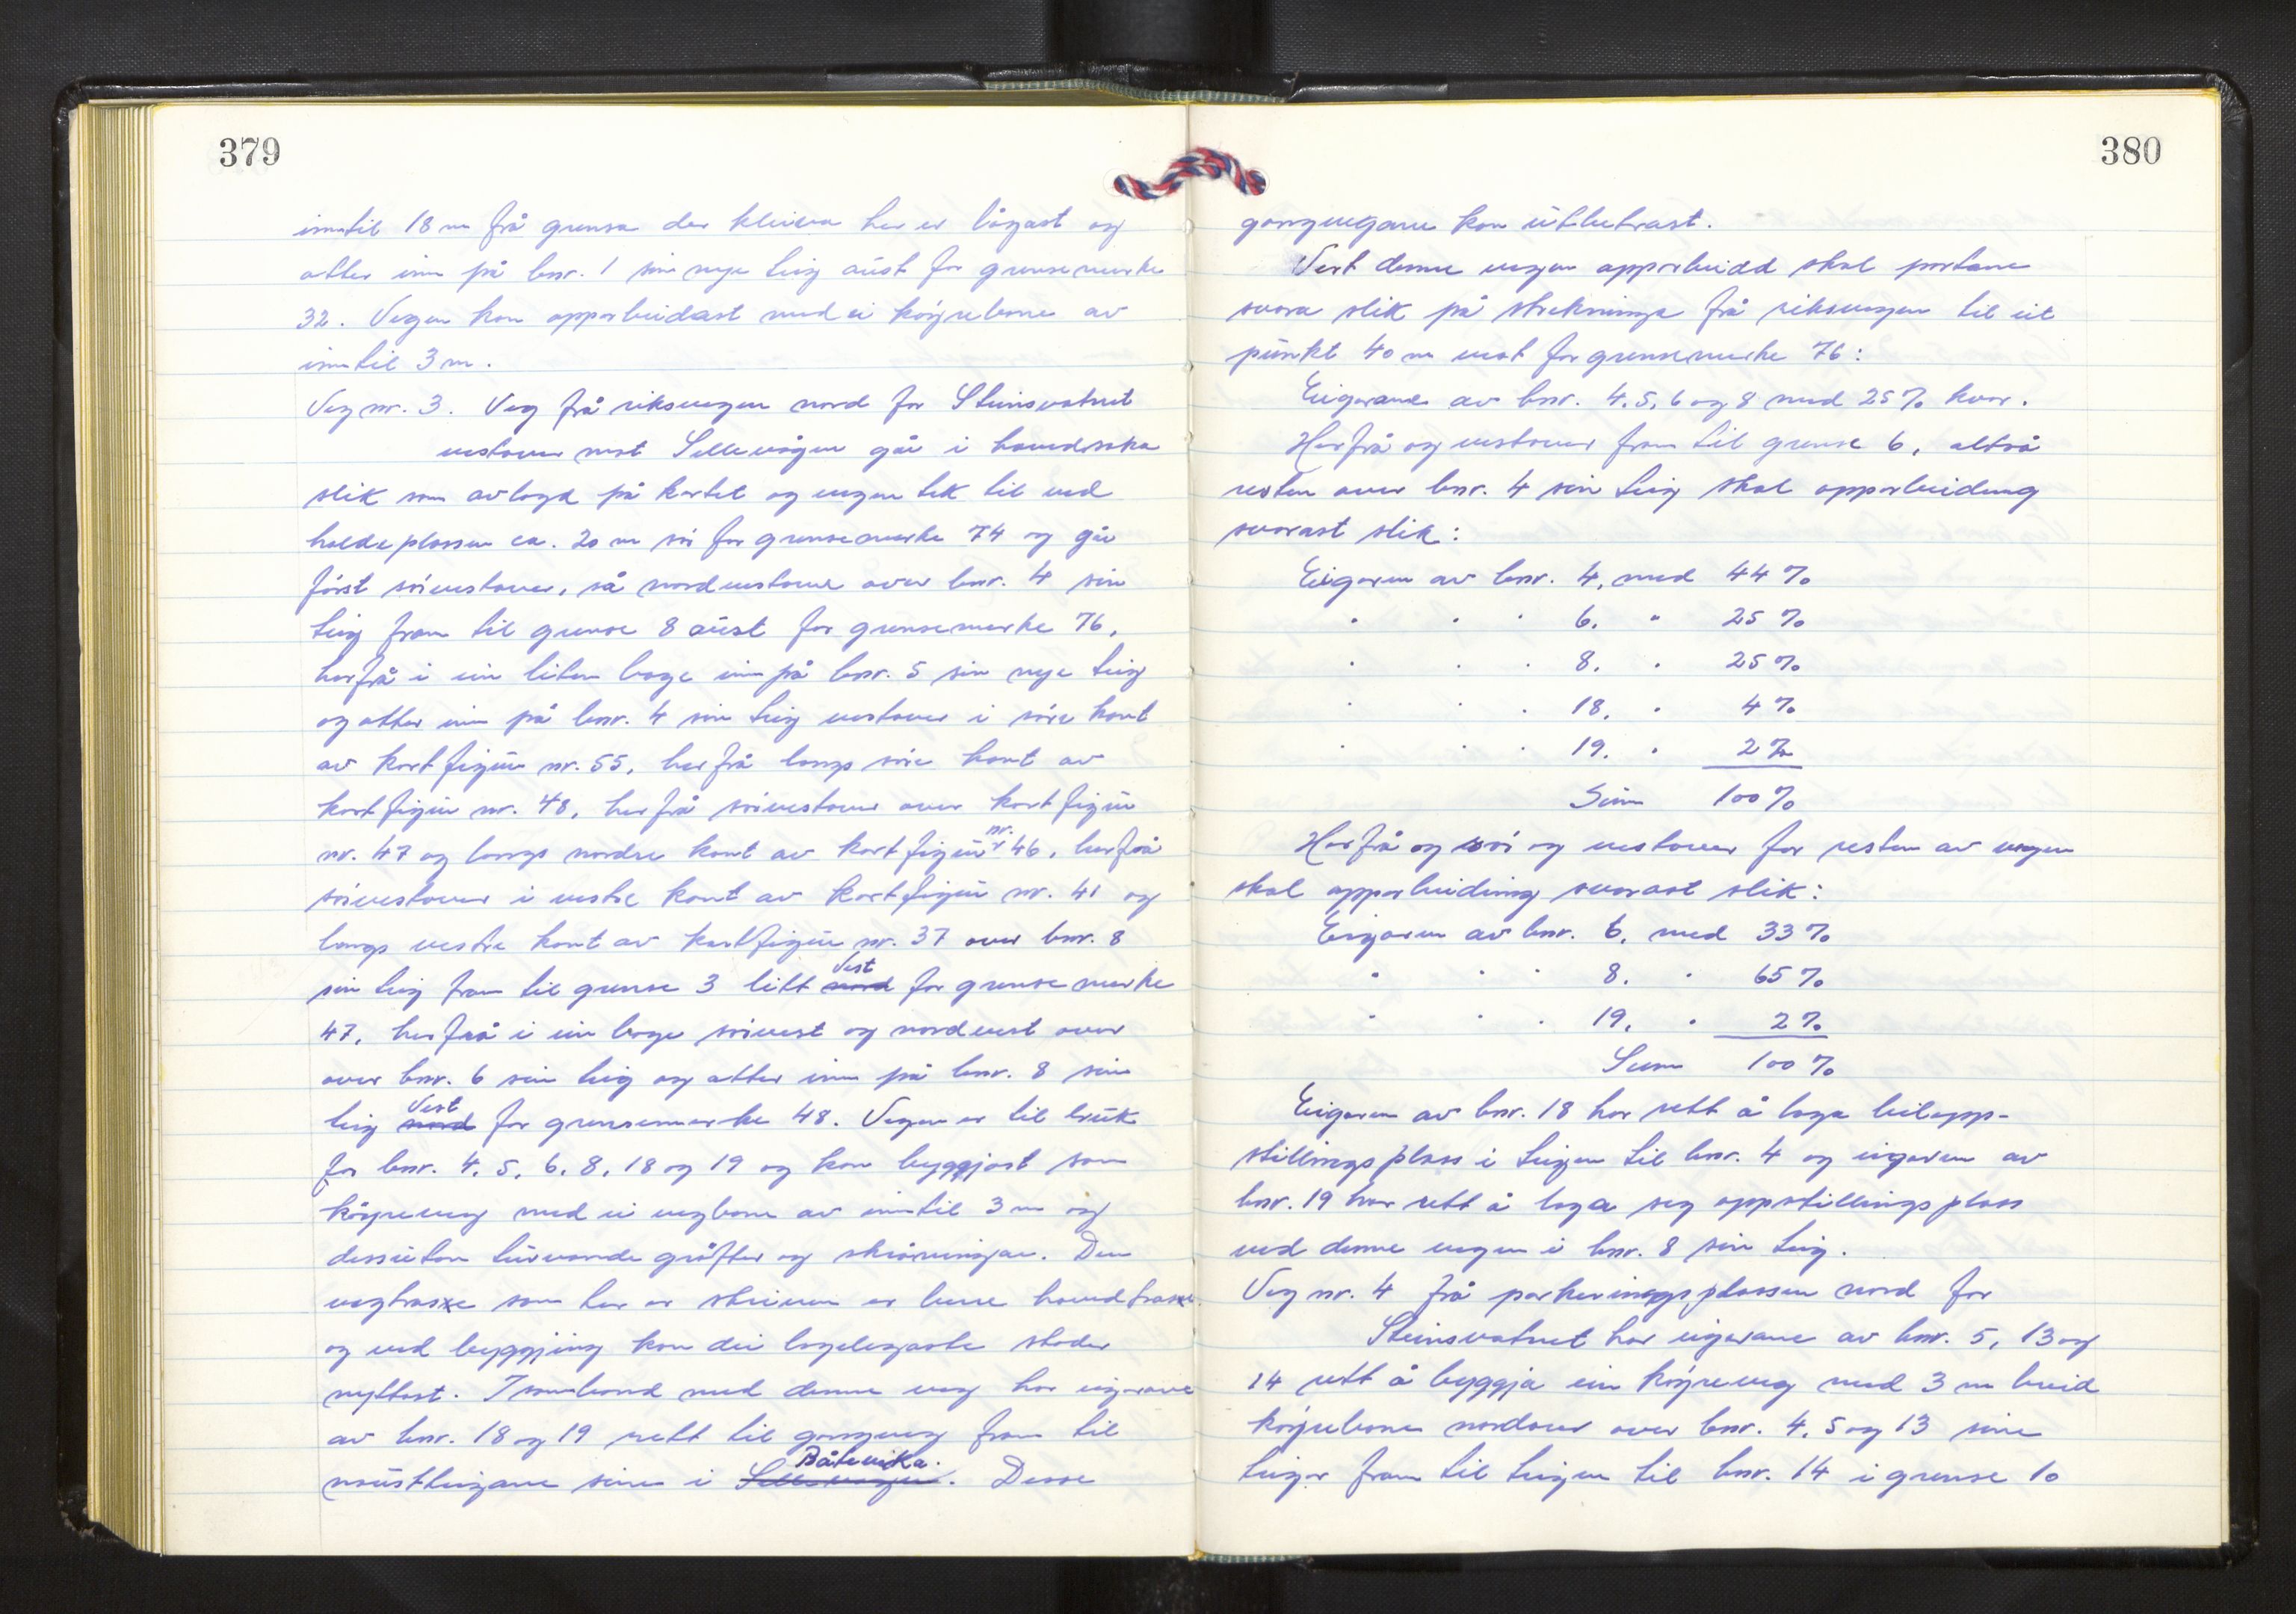 379
inntil 18 m frå grensa der kleiva her er lågast og
atter inn på bnr. 1 sin nye teig aust for grensemerke
32. Vegen kan opparbeidast med ei køyrebane av
inntil 3 m.
Veg nr. 3. Veg frå riksvegen nord for Steinsvatnet
vestover mot Sellevågen går i hovudsaka
slik som avlagd på kartet og vegen tek til ved
holdeplassen ca. 20 m sør for grensemerke 74 og går
først sørvestover, så nordvestover over bnr. 4 sin
teig fram til grense 8 aust for grensemerke 76,
herfrå i ein liten boge inn på bnr. 5 sin nye teig
og atter inn på bnr. 4 sin teig vestover i søre kant
av kartfigur nr. 55, herfrå langs søre kant av
kartfigur nr. 48, herfrå sørvestover over kartfigur
nr. 47 og langs nordre kant av kartfigur nr. 46, herfrå
sørvestover i vestre kant av kartfigur nr. 41 og
langs vestre kant av kartfigur nr. 37 over bnr. 8
sin teig fram til grense 3 litt nord Vest for grensemerke
47, herfrå i ein boge sørvest og nordvest over
over bnr. 6 sin teig og atter inn på bnr. 8 sin
teig nord Vest for grensemerke 48. Vegen er til bruk
for bnr. 4, 5, 6, 8, 18 og 19 og kan byggjast som
køyreveg med ei vegbane av inntil 3 m og
dessutan turvande grøfter og skråningar. Den
vegtrasse som her er skriven er berre hovudtrasse
og ved byggjing kan dei lagelegaste stader
nyttast. I samband med denne veg har eigarane
av bnr. 18 og 19 rett til gangveg fram til
naustteigane sine i Sellevågen Båtevika. Desse
380
gangvegane kan utbetrast.
Vert denne vegen opparbeidd skal partane
svara slik på strekninga frå riksvegen til eit
punkt 40 m vest for grensemerke 76:
Eigarane av bnr. 4, 5, 6 og 8 med 25 % kvar.
Herfrå og vestover fram til grense 6, altså
resten over bnr. 4 sin teig skal opparbeiding
svarast slik:
Eigaren av bnr. 4, med 44 %
" " " 6. " 25 %
" " " 8. " 25 %
" " " 18. " 4 %
" " " 19. " 2 %
Sum 100 %
Herfrå og sør og vestover for resten av vegen
skal opparbeiding svarast slik:
Eigaren av bnr. 6. med 33 %
" " " 8. " 65 %
" " " 19. " 2 %
Sum 100 %
Eigaren av bnr. 18 har rett å laga biloppstillingsplass i teigen til bnr. 4 og eigaren av
bnr. 19 har rett å laga seg oppstillingsplass
ved denne vegen i bnr. 8 sin teig.
Veg nr. 4 frå parkeringsplassen nord for
Steinsvatnet har eigarane av bnr. 5, 13 og
14 rett å byggja ein køyreveg med 3 m breid
køyrebane nordover over bnr. 4, 5 og 13 sine
teigar fram til teigen til bnr. 14 i grense 10